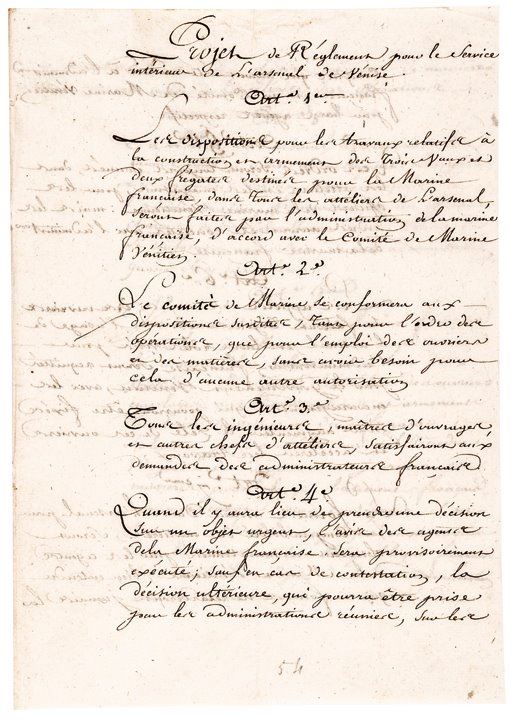 Projet de Réglement pour le Service
intérieur de L'arsenal de Vénise.
Art.e 1er
Les dispositions pour les travaux relatifs à
la construction et armement des Trois Vaux et
deux frégates destinés pour la Marine
française dans Tous les attéliers de L'arsenal,
seront faites par l'administration de la marine
française, d'accord avec le Comité de Marine
Vénitien.
Art.e 2e
Le comité de Marine se conformera aux
dispositions susdites, tant pour l'ordre des
opérations, que pour l'emploi des ouvriers
et des matières, sans avoir besoin pour
cela d'aucune autre autorisation
Art.e 3e
Tous les ingénieurs, maîtres d'ouvrages
et autres chefs d'atteliers, satisfairont aux
demandes des administrateurs français
Art.e 4e
Quand il y aura lieu de prendre une décision
sur un objet urgent, l'avis des agens
dela Marine française sera provisoirement
exécuté; sauf en cas de contestation, la
décision ultérieure, qui pourra être prise
par les administrations réunies, sur les
54